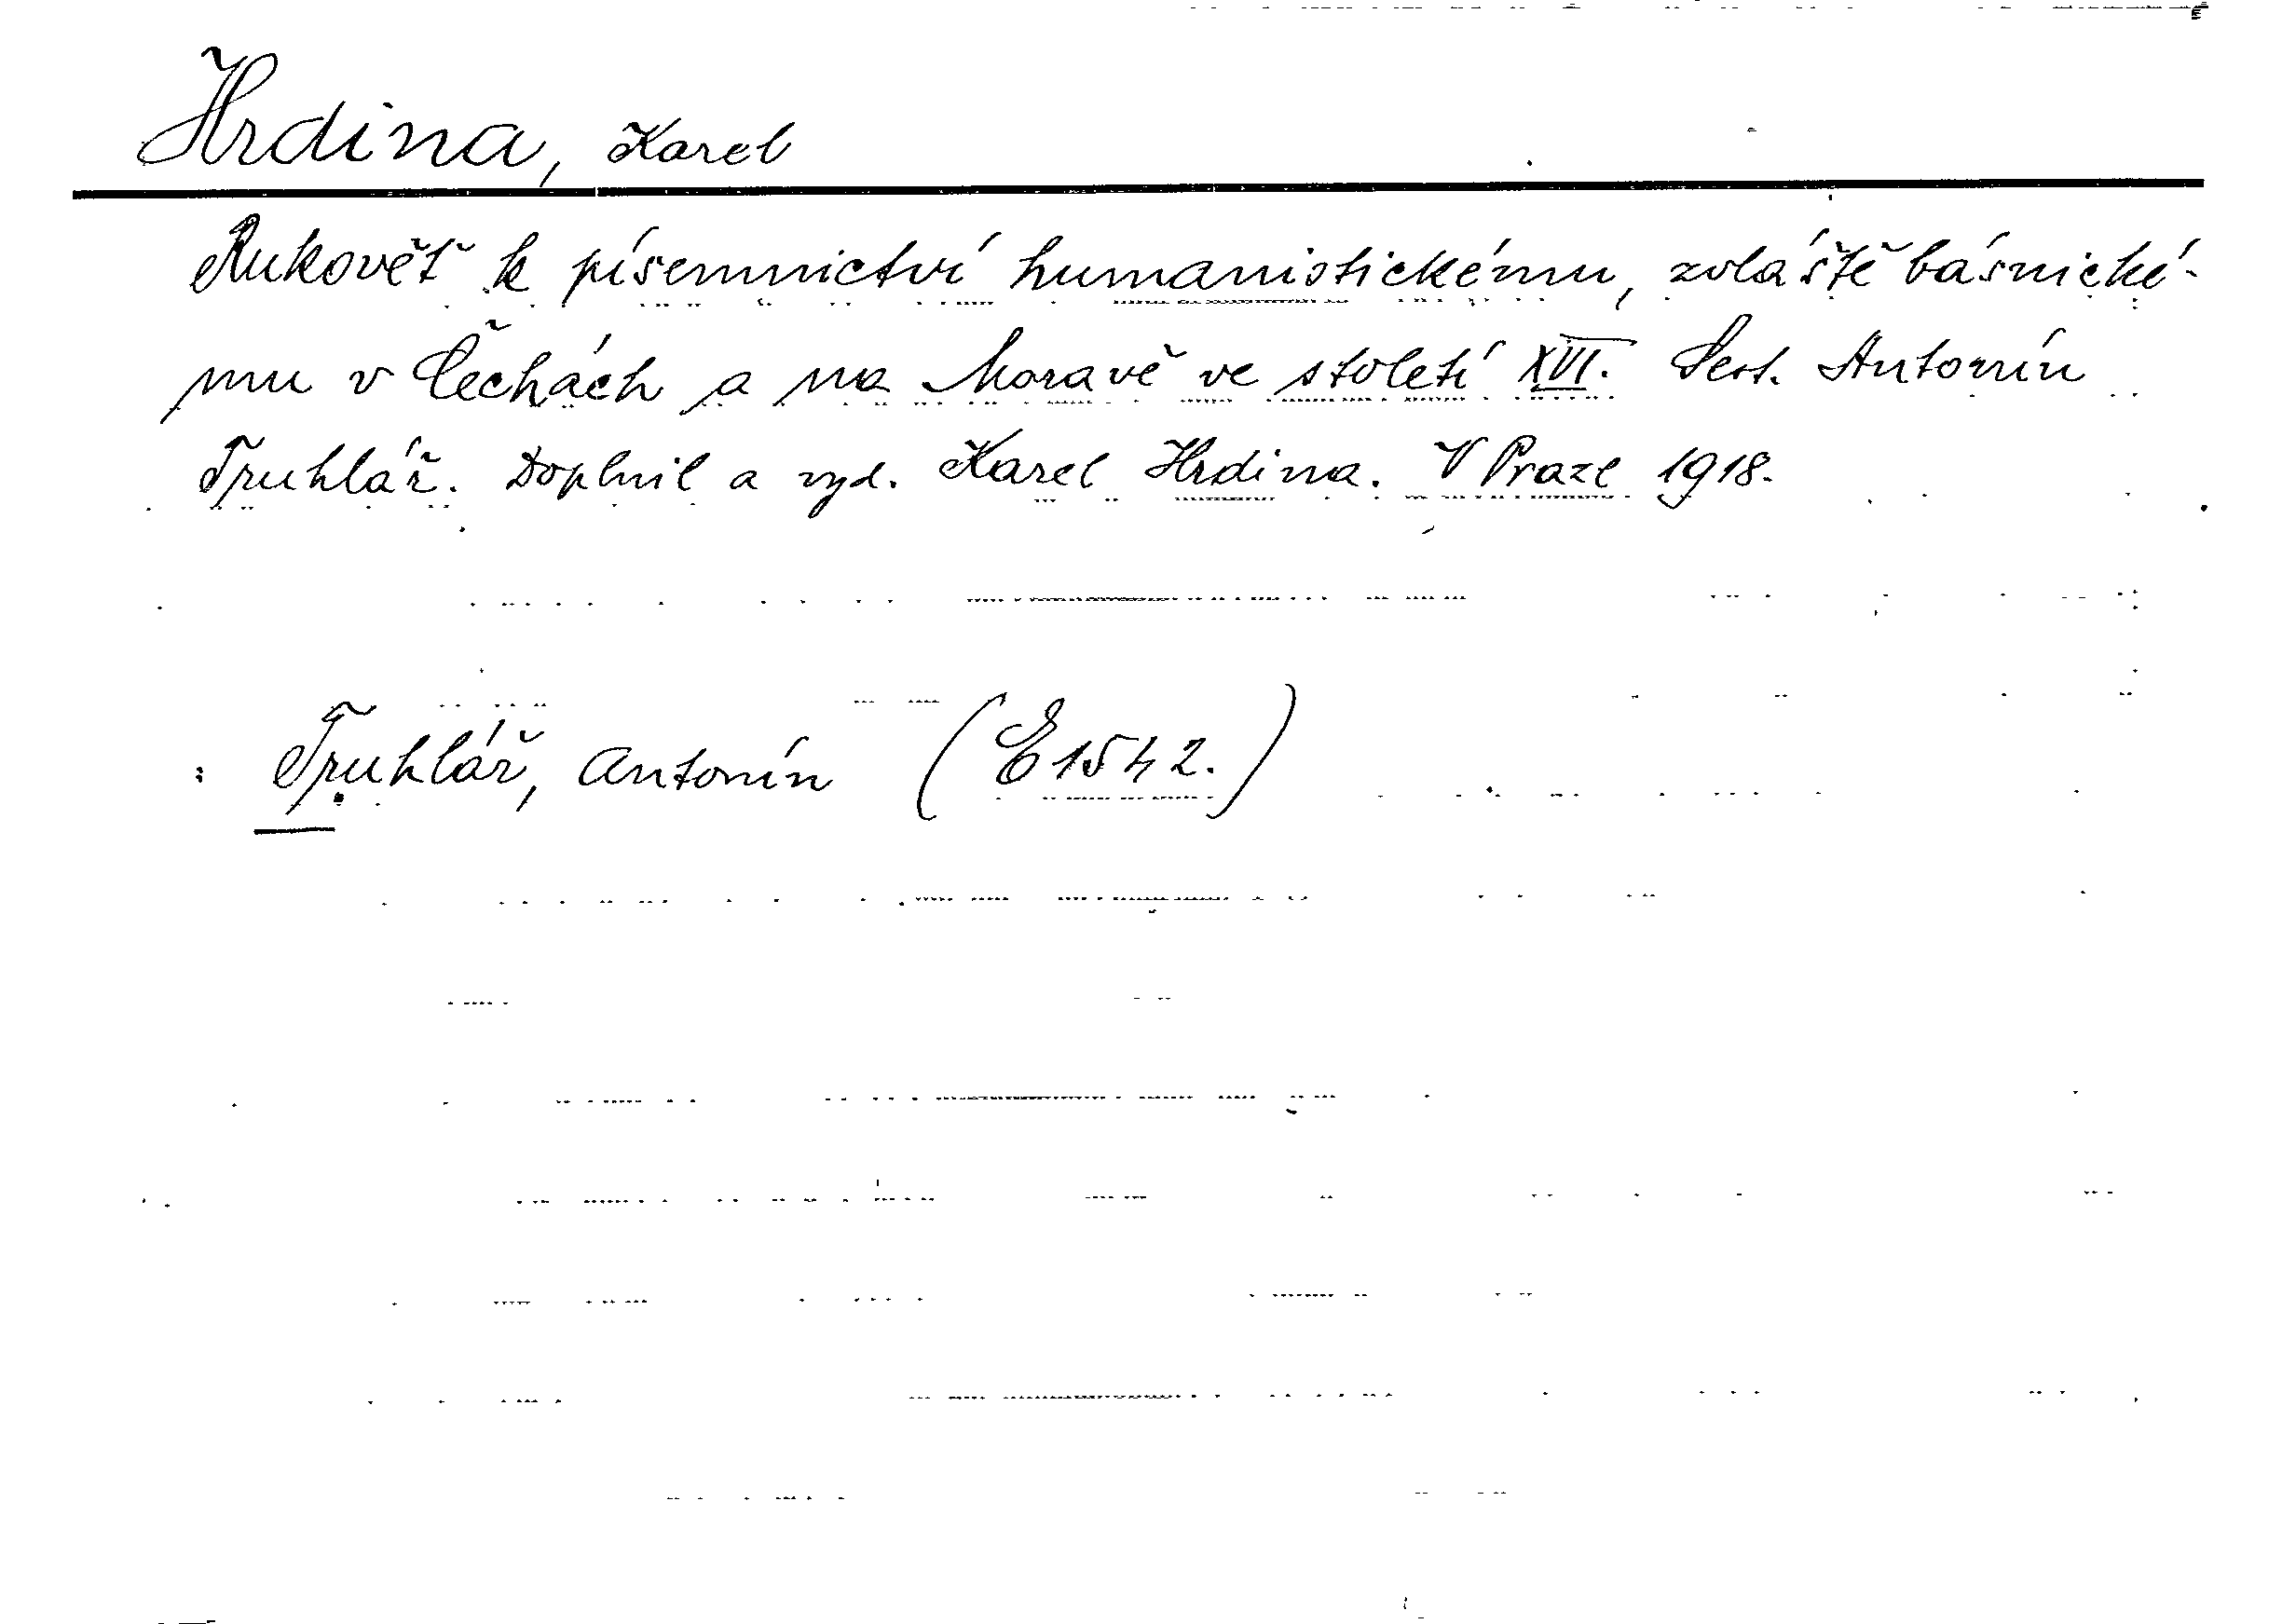 Hrdina, Karel
Rukověť k písemnictví humanistickému, zvláště básnické-
mu v Čechách a na Moravě ve století XVI. Sest. Antonín
Truhlář. Doplnil a vyd. Karel Hrdina. V Praze 1918.
: Truhlář, Antonín (E 1542.)